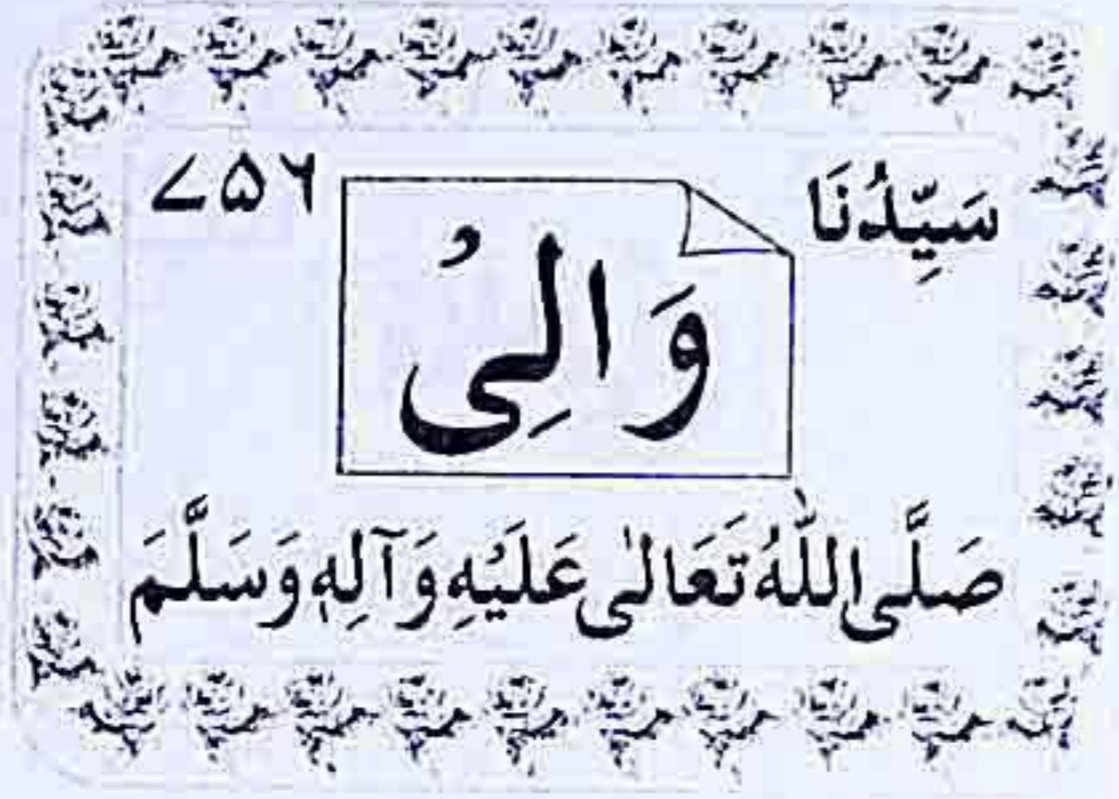 سَيِّدُنَا
وَالِیُ
۷۵۶
صَلَّى اللّٰهُ تَعَالٰى عَلَيْهِ وَآلِهٖ وَسَلَّمَ